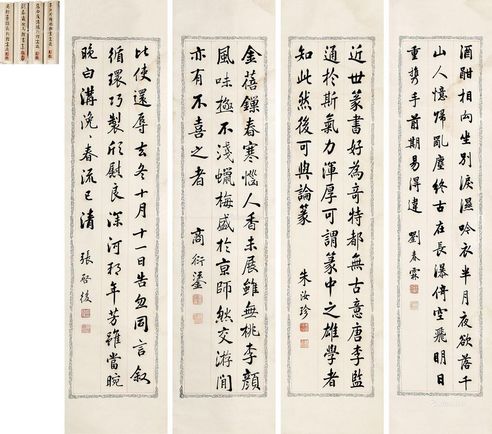 酒酣相向坐別淚濕吟衣半月夜欲落千
山人憶歸亂塵終古在長瀑倚空飛明日
重攜手前期易得違 劉春霖
近世篆書好為奇特都無古意唐李監
通於斯氣力渾厚可謂篆中之雄學者
知此然後可與論篆 朱汝珍
金蓓鏁春寒惱人香未展雖無桃李顏
風味極不淺蠟梅盛於京師然交游間
亦有不喜之者 商衍鎏
比使還辱去冬十月十一日告忽同言叙
循環巧製欣慰良深河朔年芳雖當晼
晚白溝浼浼春流已清 張啓後